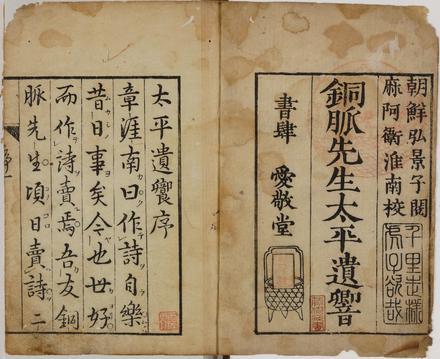 朝鮮弘景子閲
麻阿衛淮南校
銅脈先生太平遺響
書肆 愛敬堂
太平遺響序
章淮南曰作詩自樂
昔日事矣今也世好
而作詩賣焉吾友銅
脈先生頃日賣詩二
序一